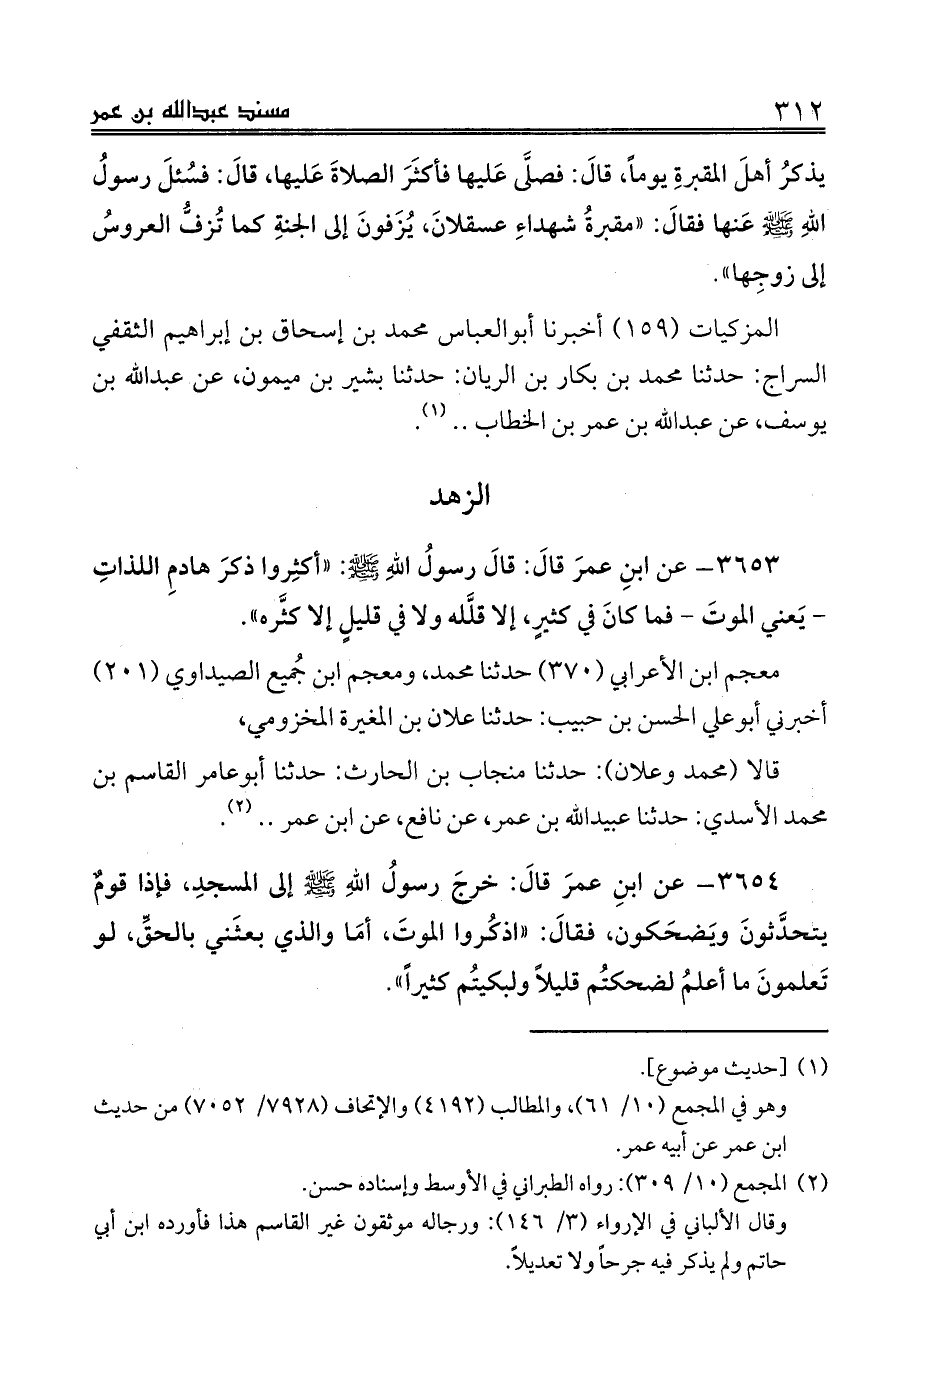 ٣١٢ مسند عبدالله بن عمر
يذكرُ أهلَ المقبرةِ يوماً، قالَ: فصلَّى عَليها فأكثَرَ الصلاةَ عَليها، قالَ: فسُئلَ رسولُ
اللهِ ﷺ عَنها فقالَ: «مقبرةُ شهداءِ عسقلانَ، يُزَفونَ إلى الجنةِ كما تُزفُّ العروسُ
إلى زوجِها».
المزكيات (١٥٩) أخبرنا أبوالعباس محمد بن إسحاق بن إبراهيم الثقفي
السراج: حدثنا محمد بن بكار بن الريان: حدثنا بشير بن ميمون، عن عبدالله بن
يوسف، عن عبدالله بن عمر بن الخطاب .. (١).
الزهد
٣٦٥٣- عن ابنِ عمرَ قالَ: قالَ رسولُ اللهِ ﷺ: «أكثِروا ذكرَ هادمِ اللذاتِ
- يَعني الموتَ - فما كانَ في كثيرٍ، إلا قلَّله ولا في قليلٍ إلا كثَّره».
معجم ابن الأعرابي (٣٧٠) حدثنا محمد، ومعجم ابن جُميع الصيداوي (٢٠١)
أخبرني أبوعلي الحسن بن حبيب: حدثنا علان بن المغيرة المخزومي،
قالا (محمد وعلان): حدثنا منجاب بن الحارث: حدثنا أبوعامر القاسم بن
محمد الأسدي: حدثنا عبيدالله بن عمر، عن نافع، عن ابن عمر .. (٢).
٣٦٥٤- عن ابنِ عمرَ قالَ: خرجَ رسولُ اللهِ ﷺ إلى المسجدِ، فإذا قومٌ
يتحدَّثونَ ويَضحَكون، فقالَ: «اذكُروا الموتَ، أمَا والذي بعثَني بالحقِّ، لو
تَعلمونَ ما أعلمُ لضحكتُم قليلاً ولبكيتُم كثيراً».
(١) [حديث موضوع].
وهو في المجمع (١٠/ ٦١)، والمطالب (٤١٩٢) والإتحاف (٧٩٢٨/ ٧٠٥٢) من حديث
ابن عمر عن أبيه عمر.
(٢) المجمع (١٠/ ٣٠٩): رواه الطبراني في الأوسط وإسناده حسن.
وقال الألباني في الإرواء (٣/ ١٤٦): ورجاله موثقون غير القاسم هذا فأورده ابن أبي
حاتم ولم يذكر فيه جرحاً ولا تعديلاً.